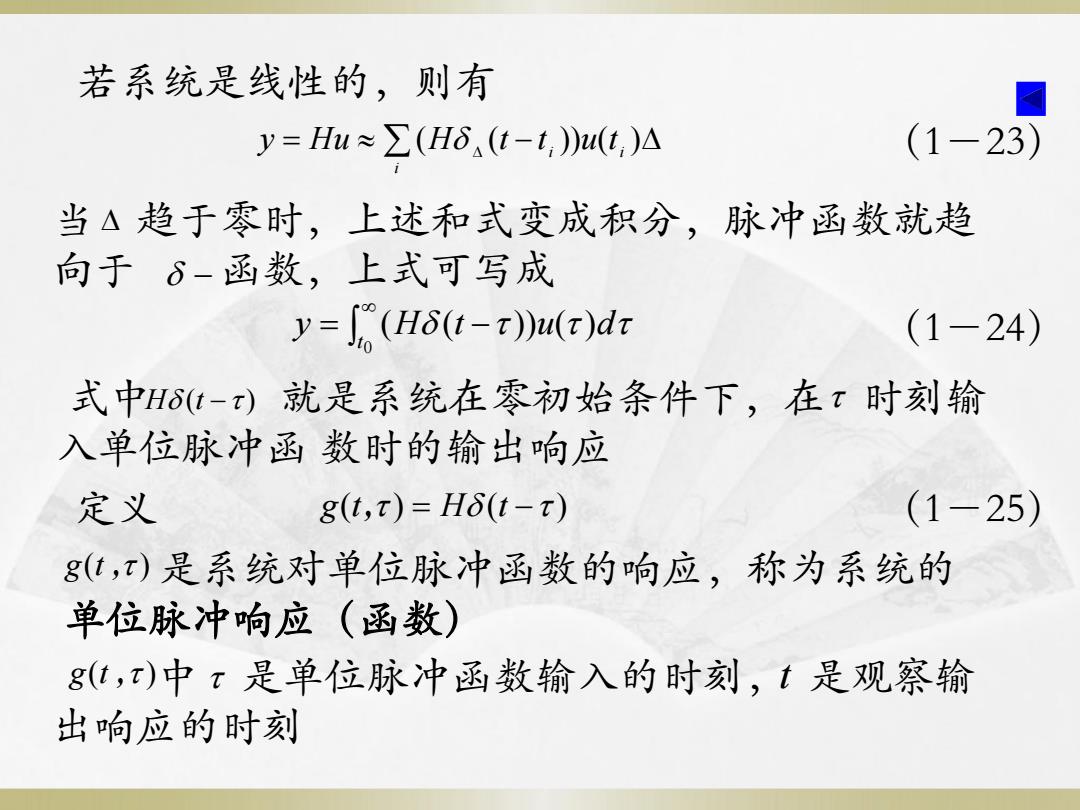 若系统是线性的，则有
y = Hu ≈ ∑_i (Hδ_Δ(t − t_i))u(t_i)Δ （1－23）
当 Δ 趋于零时，上述和式变成积分，脉冲函数就趋
向于 δ − 函数，上式可写成
y = ∫_{t_0}^{∞} (Hδ(t − τ))u(τ)dτ （1－24）
式中Hδ(t − τ) 就是系统在零初始条件下，在 τ 时刻输
入单位脉冲函 数时的输出响应
定义 g(t,τ) = Hδ(t − τ) （1－25）
g(t ,τ) 是系统对单位脉冲函数的响应，称为系统的
单位脉冲响应（函数）
g(t ,τ)中 τ 是单位脉冲函数输入的时刻，t 是观察输
出响应的时刻